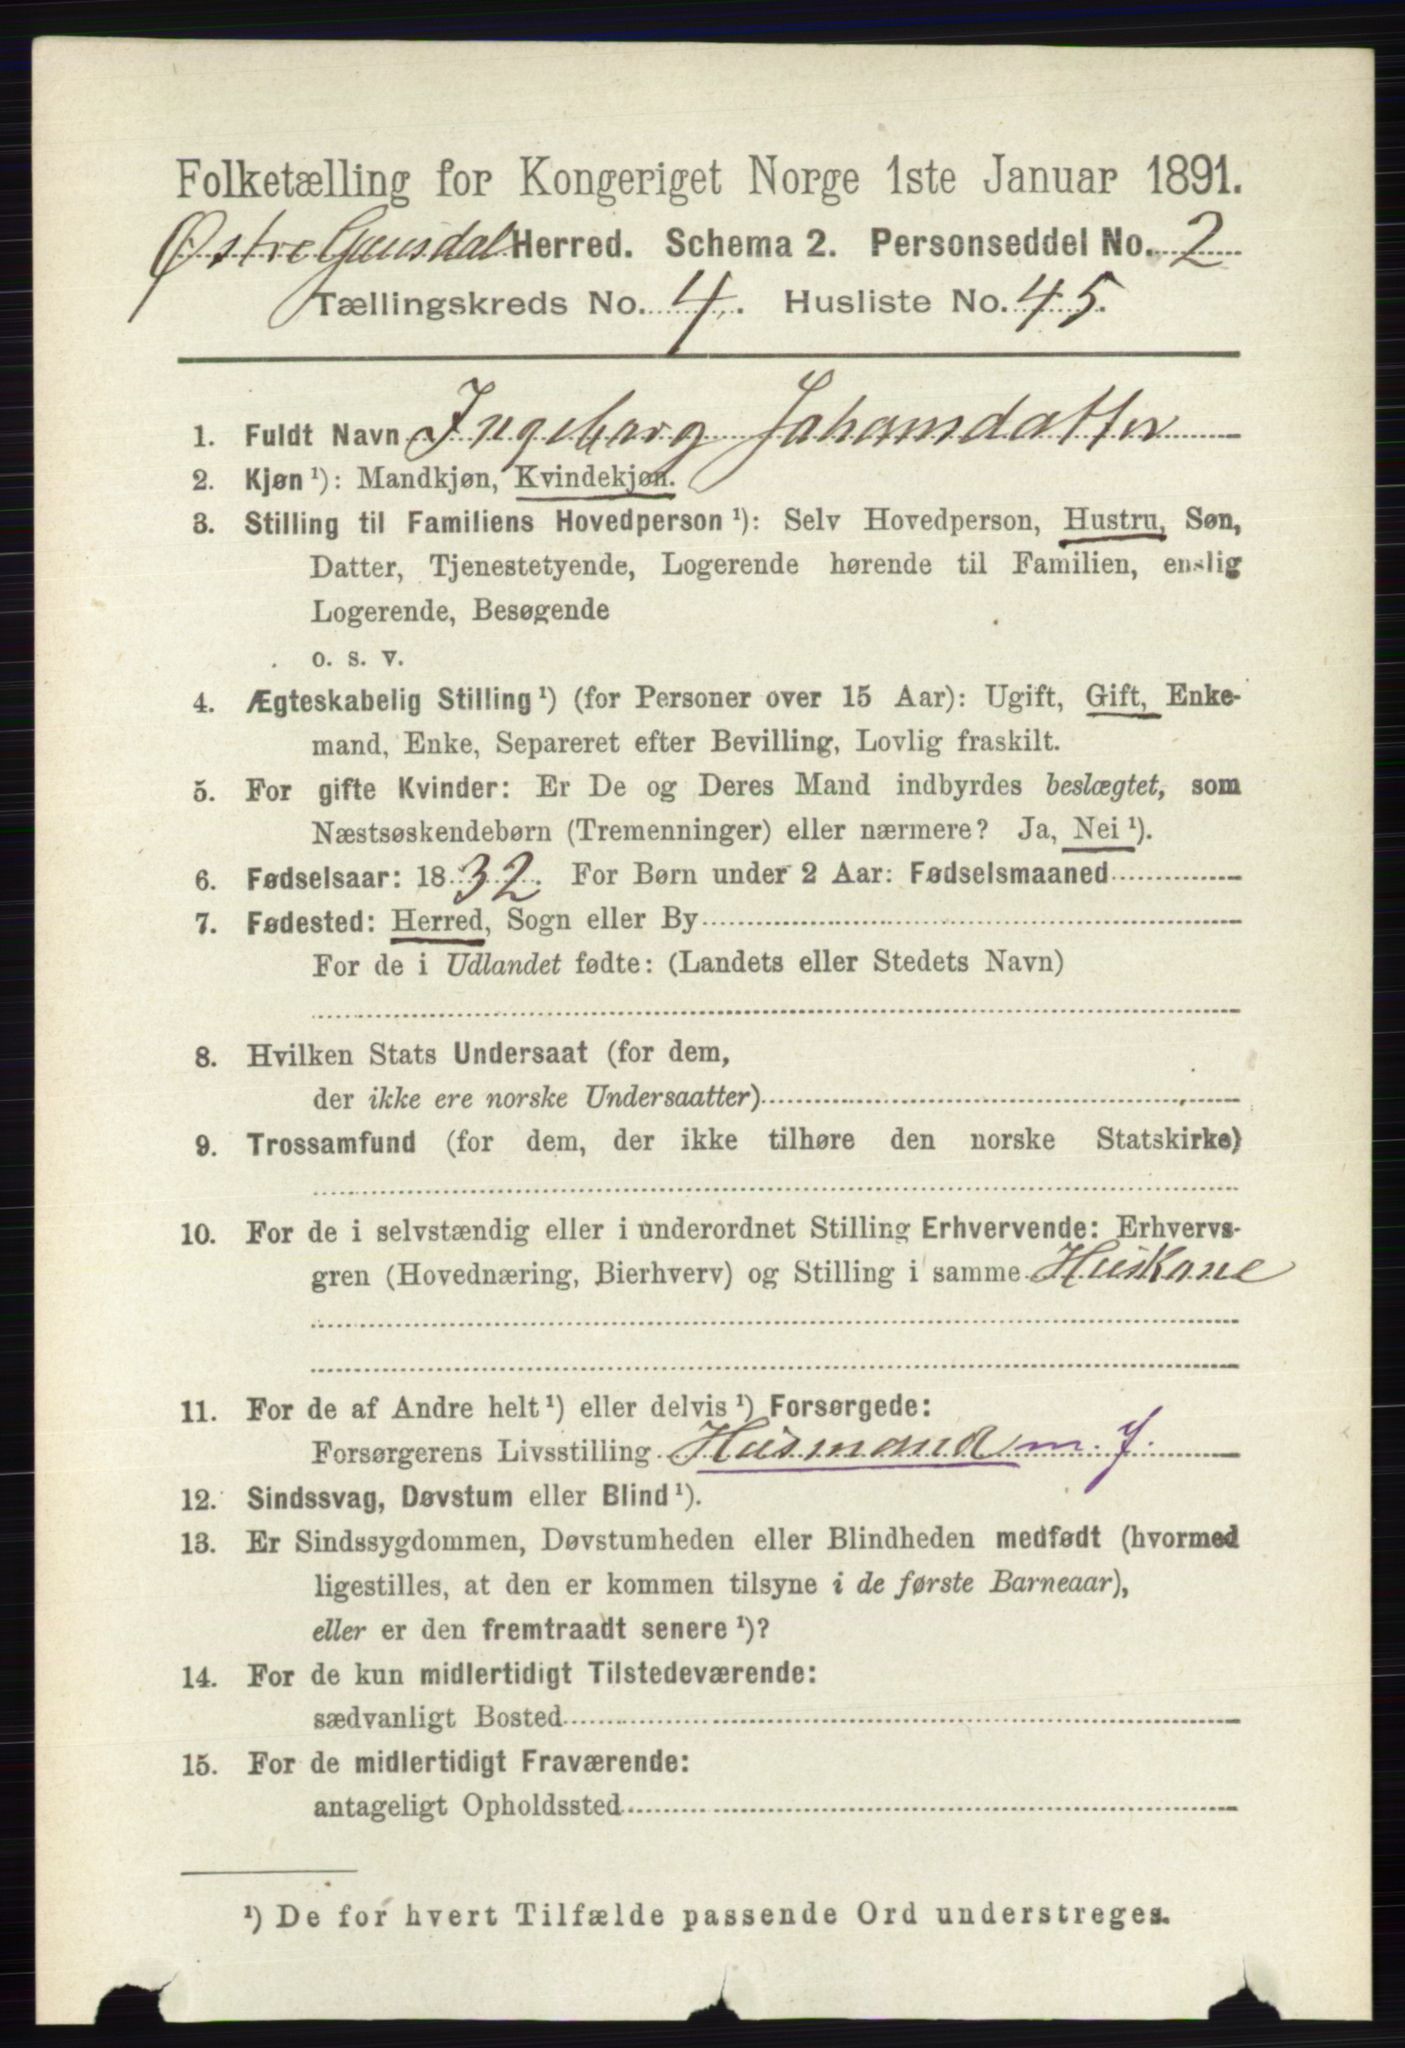 Folketælling for Kongeriget Norge 1ste Januar 1891.
Østre Gausdal Herred. Schema 2. Personseddel No. 2
Tællingskreds No. 4. Husliste No. 45.
1. Fuldt Navn Ingeborg Johansdatter
2. Kjøn ¹): Mandkjøn, Kvindekjøn.
3. Stilling til Familiens Hovedperson ¹): Selv Hovedperson, Hustru, Søn,
Datter, Tjenestetyende, Logerende hørende til Familien, enslig
Logerende, Besøgende
o. s. v.
4. Ægteskabelig Stilling ¹) (for Personer over 15 Aar): Ugift, Gift, Enke-
mand, Enke, Separeret efter Bevilling, Lovlig fraskilt.
5. For gifte Kvinder: Er De og Deres Mand indbyrdes beslægtet, som
Næstsøskendebørn (Tremenninger) eller nærmere? Ja, Nei ¹).
6. Fødselsaar: 1832. For Børn under 2 Aar: Fødselsmaaned
7. Fødested: Herred, Sogn eller By
For de i Udlandet fødte: (Landets eller Stedets Navn)
8. Hvilken Stats Undersaat (for dem,
der ikke ere norske Undersaatter)
9. Trossamfund (for dem, der ikke tilhøre den norske Statskirke)
10. For de i selvstændig eller i underordnet Stilling Erhvervende: Erhvervs-
gren (Hovednæring, Bierhverv) og Stilling i samme Huskone
11. For de af Andre helt ¹) eller delvis ¹) Forsørgede:
Forsørgerens Livsstilling Husmand m. J.
12. Sindssvag, Døvstum eller Blind ¹).
13. Er Sindssygdommen, Døvstumheden eller Blindheden medfødt (hvormed
ligestilles, at den er kommen tilsyne i de første Barneaar),
eller er den fremtraadt senere ¹)?
14. For de kun midlertidigt Tilstedeværende:
sædvanligt Bosted
15. For de midlertidigt Fraværende:
antageligt Opholdssted
¹) De for hvert Tilfælde passende Ord understreges.